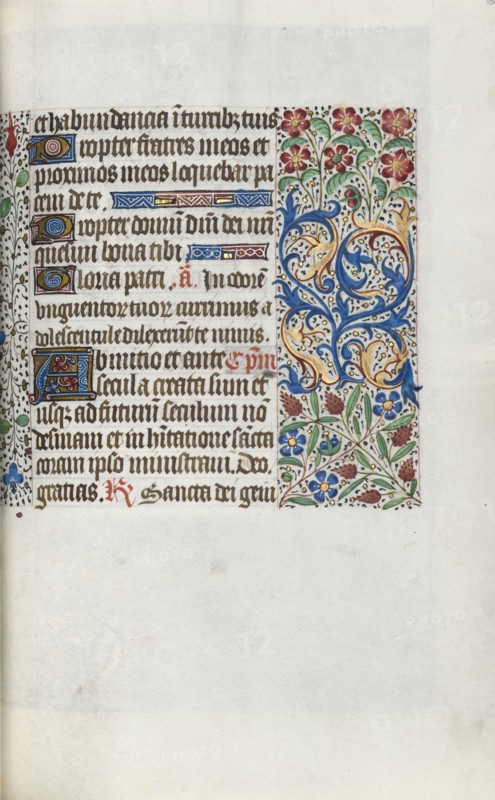 et habundancia ī turribꝫ tuis
Propter fratres meos et
proximos meos loquebar pa
cem de te.
Propter domū dn̄i dei nr̄i
quesiui bona tibi
Gloria patri. .ā. In odorē
vnguentoꝝ tuoꝝ currimus a
dolescentule dilexerūt te nimis.
Ab initio et ante Cpm̄
secula creata sum et
usqꝫ ad futurū seculum nō
desinam et in hītatione sācta
coram ipso ministraui. Deo
gratias. ℟ Sancta dei geni